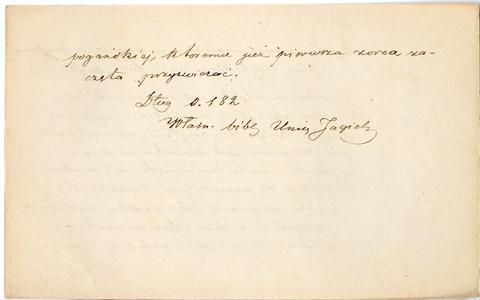 pogańskiej, któremu już pierwsza zorza za-
częła przyświecać.
Dług s. 182
Własn. bibl. Uniw. Jagiell.